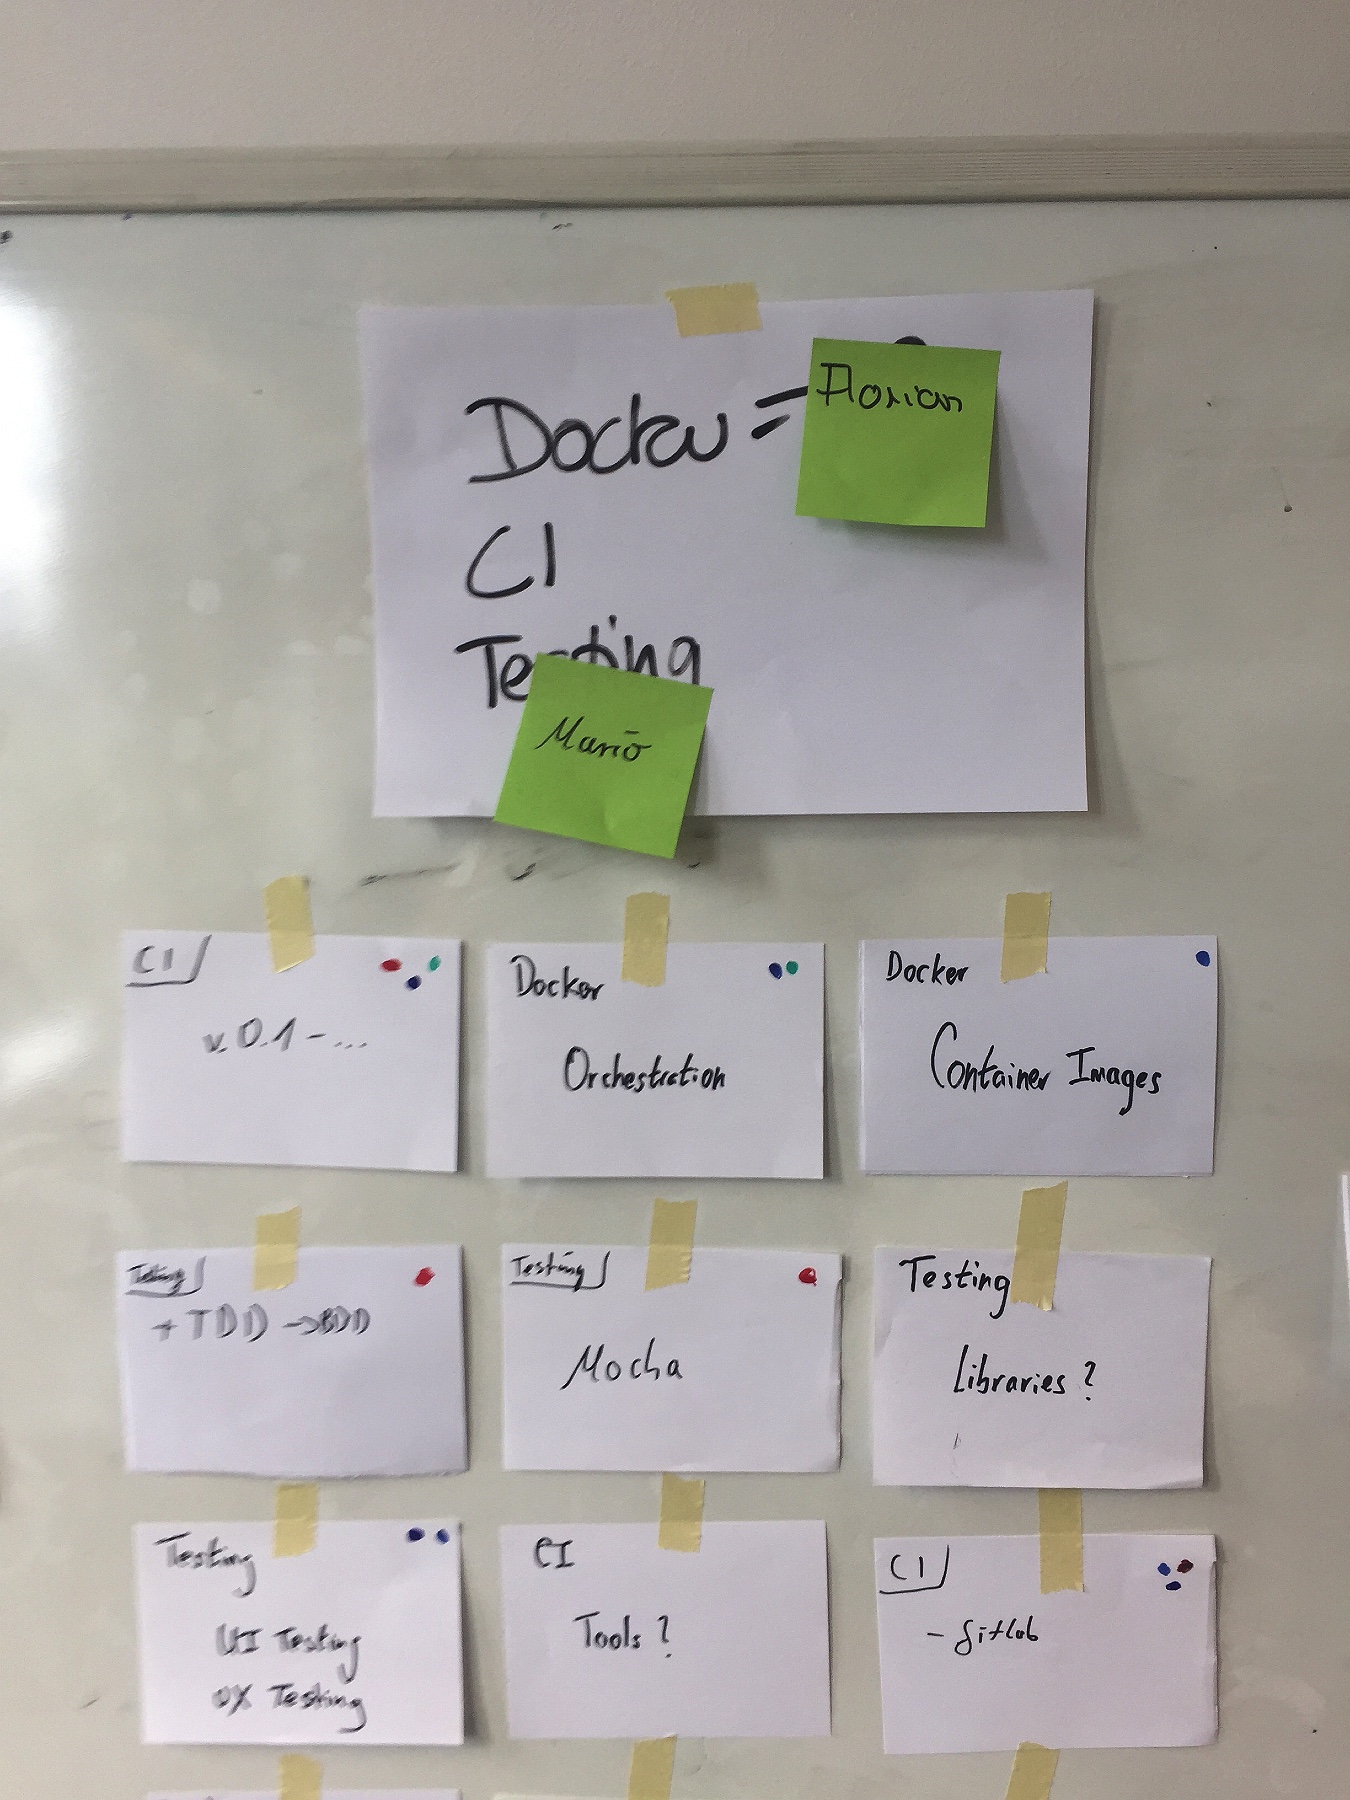 Docker =
Florian
CI
Testing
Mario
CI
v. 0.1 - ...
Docker
Orchestration
Docker
Container Images
Testing
+ TDD -> BDD
Testing
Mocha
Testing
Libraries ?
Testing
UI Testing
UX Testing
CI
Tools ?
CI
- Gitlab